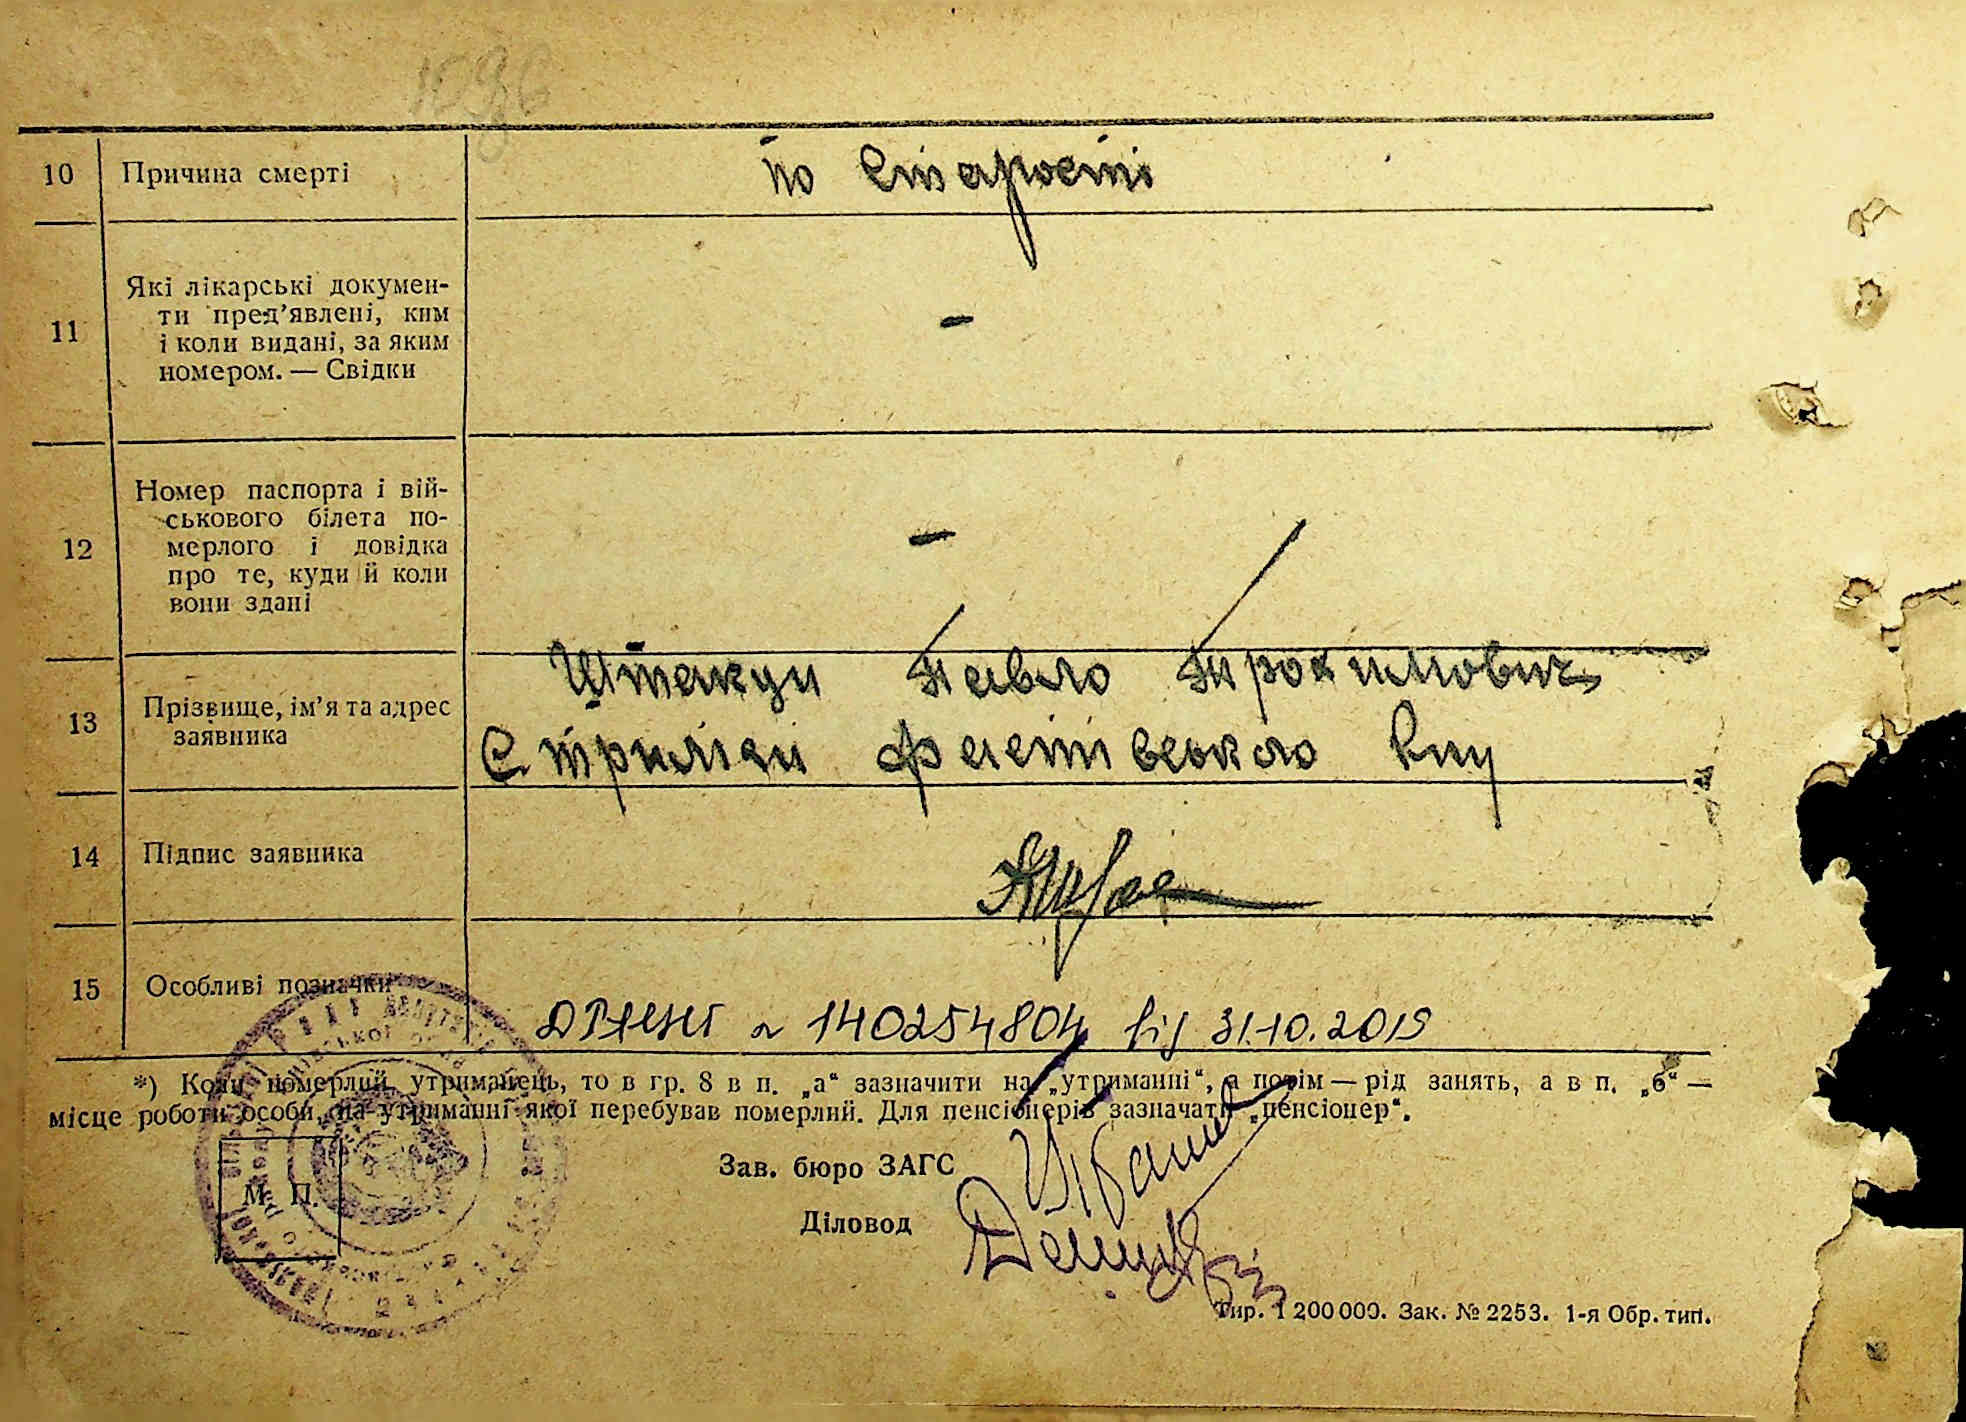 1096
10 Причина смерті по старості
11 Які лікарські докумен-
ти пред’явлені, ким
і коли видані, за яким
номером. — Свідки
-
12 Номер паспорта і вій-
ськового білета по-
мерлого і довідка
про те, куди й коли
вони здані
-
13 Прізвище, ім’я та адрес
заявника
Павло Трохимович
Фастівського
14 Підпис заявника
15 Особливі позначки
№ 140254804 від 31.10.2019
*) Коли померлий, утриманець, то в гр. 8 в п. „а“ зазначити на „утриманні“, а потім — рід занять, а в п. „б“ —
місце роботи особи, на утриманні якої перебував померлий. Для пенсіонерів зазначати „пенсіонер“.
М. П.
Зав. бюро ЗАГС
Діловод
Тир. 1 200 000. Зак. № 2253. 1-я Обр. тип.